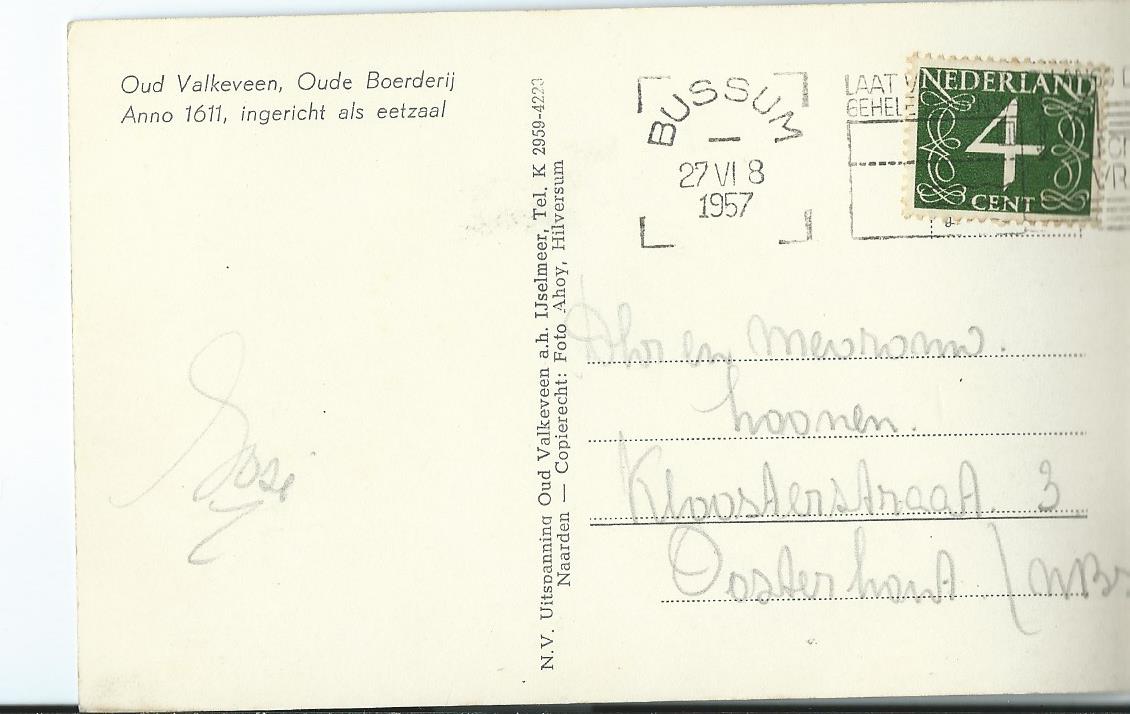 Oud Valkeveen, Oude Boerderij
Anno 1611, ingericht als eetzaal
N.V. Uitspanning Oud Valkeveen a.h. IJselmeer, Tel. K 2959-4223
Naarden — Copierecht: Foto Ahoy, Hilversum
BUSSUM
27 VI 8
1957
LAAT
GEHELE
NEDERLAND
4
CENT
Dhr en Mevrouw.
Loonen.
Kloosterstraat 3
Oosterhout (NBr